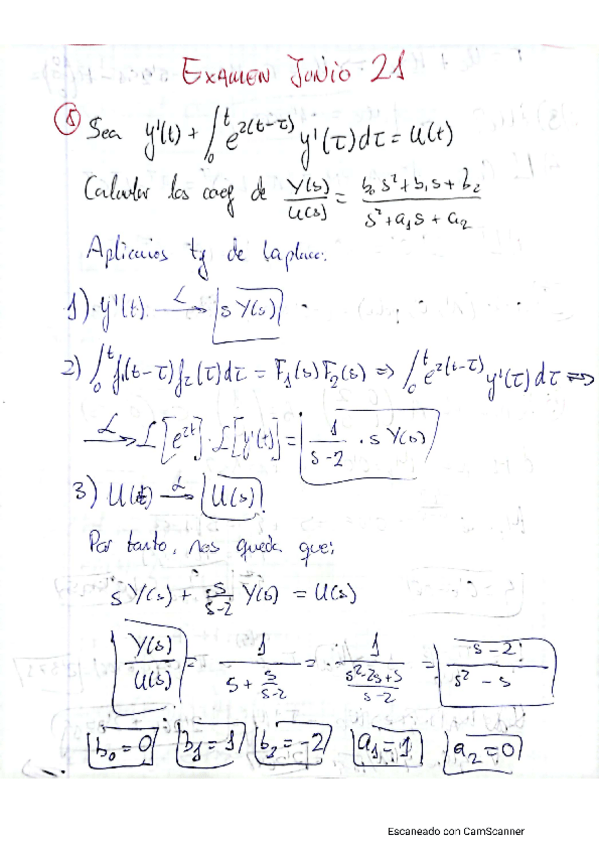 EXAMEN JUNIO 21
⑧ Sea y'(t) + ∫₀ᵗ e^{2(t-τ)} y'(τ)dτ = U(t)
Calcular los coeg de Y(s)/U(s) = (b₀s²+b₁s+b₂)/(s²+a₁s+a₂)
Aplicamos tg de Laplace:
1) y'(t) —ℒ→ sY(s)
2) ∫₀ᵗ f₁(t-τ)f₂(τ)dτ = F₁(s)F₂(s) ⇒ ∫₀ᵗ e^{2(t-τ)} y'(τ)dτ ⇒
—ℒ→ ℒ[e^{2t}]·ℒ[y'(t)] = 1/(s-2) · sY(s)
3) U(t) —ℒ→ U(s)
Por tanto, nos queda que:
sY(s) + s/(s-2) Y(s) = U(s)
Y(s)/U(s) = 1/(s + s/(s-2)) = 1/((s²-2s+s)/(s-2)) = (s-2)/(s²-s)
b₀=0 b₁=1 b₂=-2 a₁=1 a₂=0
Escaneado con CamScanner